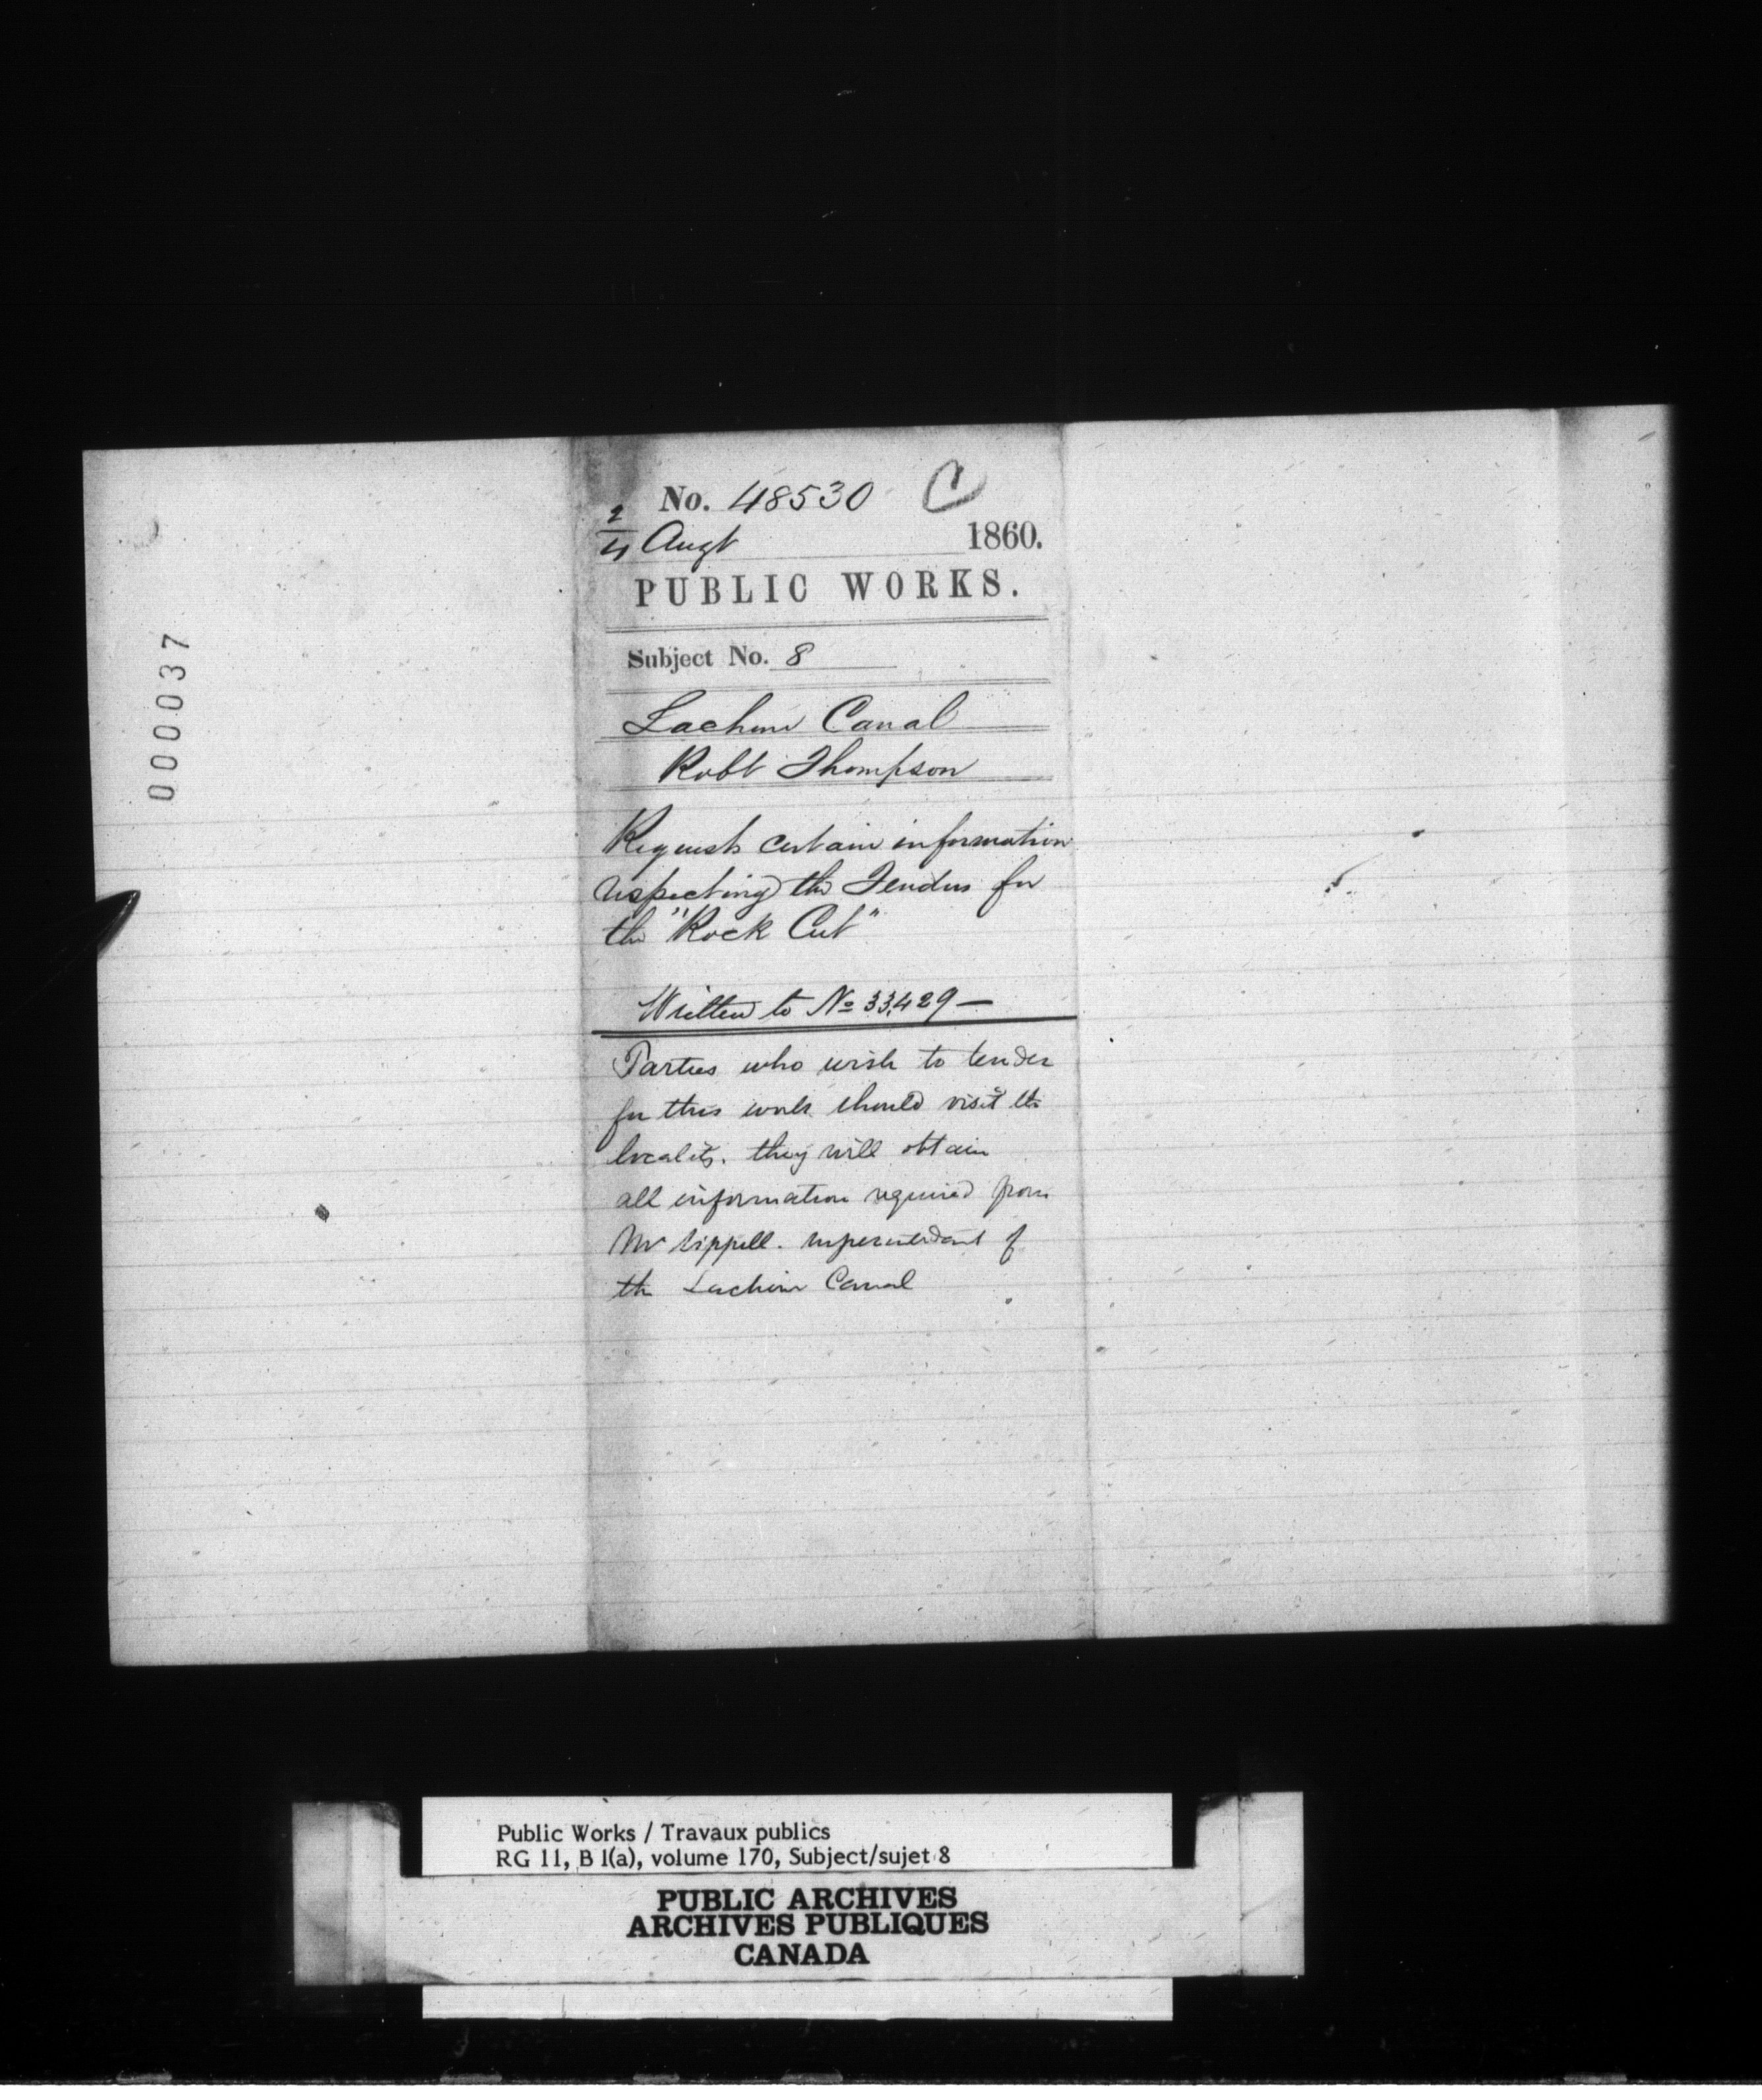 No. 48530 C
2/4 Augt 1860.
PUBLIC WORKS.
Subject No. 8
Lachine Canal
Robt Thompson
Requests certain information
respecting the Tenders for
the "Rock Cut"
Written to No 33,429 —
Parties who wish to tender
for this work should visit the
locality. they will obtain
all information required from
Mr Sippell. superintendant of
the Lachine Canal
000037
Public Works / Travaux publics
RG 11, B 1(a), volume 170, Subject/sujet 8
PUBLIC ARCHIVES
ARCHIVES PUBLIQUES
CANADA